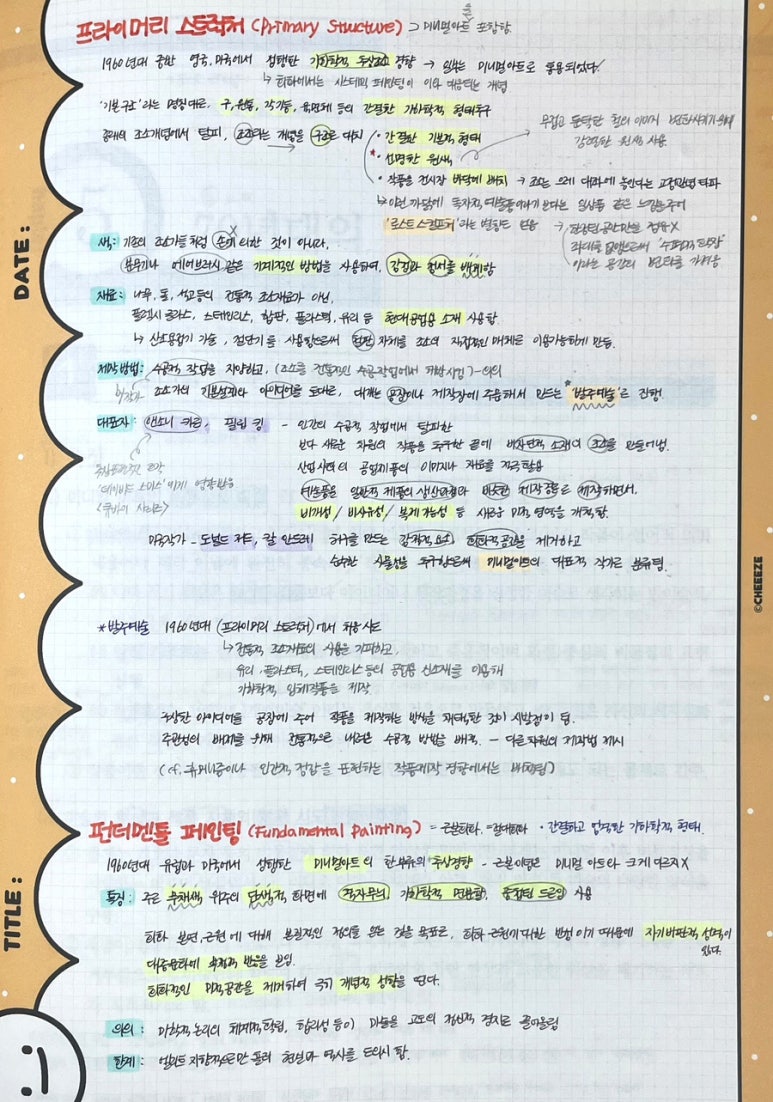 프라이머리 스트럭쳐 (Primary Structure) ⊃ 미니멀아트 포함함
1960년대 중반 영국, 미국에서 성행한 기하학적 추상조각 경향 → 일부는 미니멀아트로 통용되었다.
↳ 회화에서는 시스테믹 페인팅이 이와 대응되는 개념
'기본구조'라는 명칭대로, 구, 원통, 각기둥, 육면체 등의 간결한 기하학적 형태추구
종래의 조소개념에서 탈피, 조소라는 개념을 구조로 대치
• 간결한 기본적 형태
* • 선명한 원색
무겁고 둔탁한 철의 이미지 변화시키기 위해
강렬한 원색 사용
• 작품을 전시장 바닥에 배치 → 조소는 으레 대좌에 놓인다는 고정관념 타파
↳ 이런 까닭에 독자적 예술품이라기 보다는 일상품 같은 느낌을 주어
'로스트 스컬프처'라는 별칭도 얻음
→ 한정된 공간만을 점유X
좌대를 없앰으로써 '수평적 확장'
이라는 공간의 변화를 가져옴
색: 기존의 조소기들처럼 손에 의한 것이 아니라,
분무기나 에어브러시 같은 기계적인 방법을 사용하여, 감정과 정서를 배제함
재료: 나무, 돌, 석고등의 전통적 조소재료가 아닌,
플렉시글라스, 스테인리스, 합판, 플라스틱, 유리 등 현대공업용 소재 사용함.
↳ 산소용접기 기술, 절단기를 사용함으로써 철판 자체를 조소의 직접적인 매체로 이용가능하게 만듦.
제작방법: 수공적 작업을 지양하고, (조소를 전통적인 수공작업에서 해방시킴) - 의의
조소가의 기본설계와 아이디어를 토대로, 대개는 공장이나 제작장에 주문해서 만드는 *'발주예술'로 진행.
대표자: 앤소니 카로, 필립 킹 - 인간의 수공적 작업에서 탈피한
보다 새로운 차원의 작품을 추구한 끝에 비자연적 소재의 조소를 만들어냄.
'데이비드 스미스'에게 영향받음
<큐비아 시리즈>
산업사회의 공업제품의 이미지나 재료를 적극활용
예술품을 일반적 제품의 생산과정과 비슷한 제작공정으로 제작하면서,
비개성/비사유성/복제가능성 등 새로운 미적 영역을 개척함.
미국작가 - 도널드 저드, 칼 안드레 허구를 만드는 감각적 요소, 회화적 공간을 제거하고
순수한 사물성을 추구함으로써 미니멀아트의 대표적 작가로 분류됨.
*발주예술 1960년대 (프라이머리 스트럭쳐)에서 처음 시도
↳ 전통적 조소재료의 사용을 기피하고,
유리, 플라스틱, 스테인리스 등의 공업용 신소재를 이용해
기하학적 입체작품을 제작
구상한 아이디어를 공장에 주어 작품을 제작하는 방식을 채택한 것이 시발점이 됨.
주관성의 배제를 위해 전통적으로 내려온 수공적 방법을 배격. - 다른차원의 제작법 제시
(cf. 휴머니즘이나 인간적 정감을 표현하는 작품제작 경향에서는 배척됨)
펀더멘틀 페인팅 (Fundamental Painting) = 근본회화, =절대회화 • 간결하고 엄격한 기하학적 형태.
1960년대 유럽과 미국에서 성행한 미니멀아트의 한부류의 추상경향 - 근본이념은 미니멀 아트와 크게 다르지X
특징: 주로 무채색 위주의 단색적 화면에 격자무늬, 기하학적 면분할, 중첩된 드로잉 사용
회화 본연, 근원에 대해 본질적인 정의를 얻는 것을 목표로, 회화 근원에 대한 반성이기 때문에 자기비판적 성격이
있다.
대중문화에 부정적 반응을 보임.
회화적인 미적공간을 제거하여 극히 개념적 성향을 띤다.
의의: 미학적 논리의 체계적 확립, 합리성 등이 미술을 고도의 정신적 경지로 끌어올림
한계: 엘리트 지향적으로만 흘러 현실과 역사를 도외시 함.
DATE:
TITLE:
©CHEEEZE